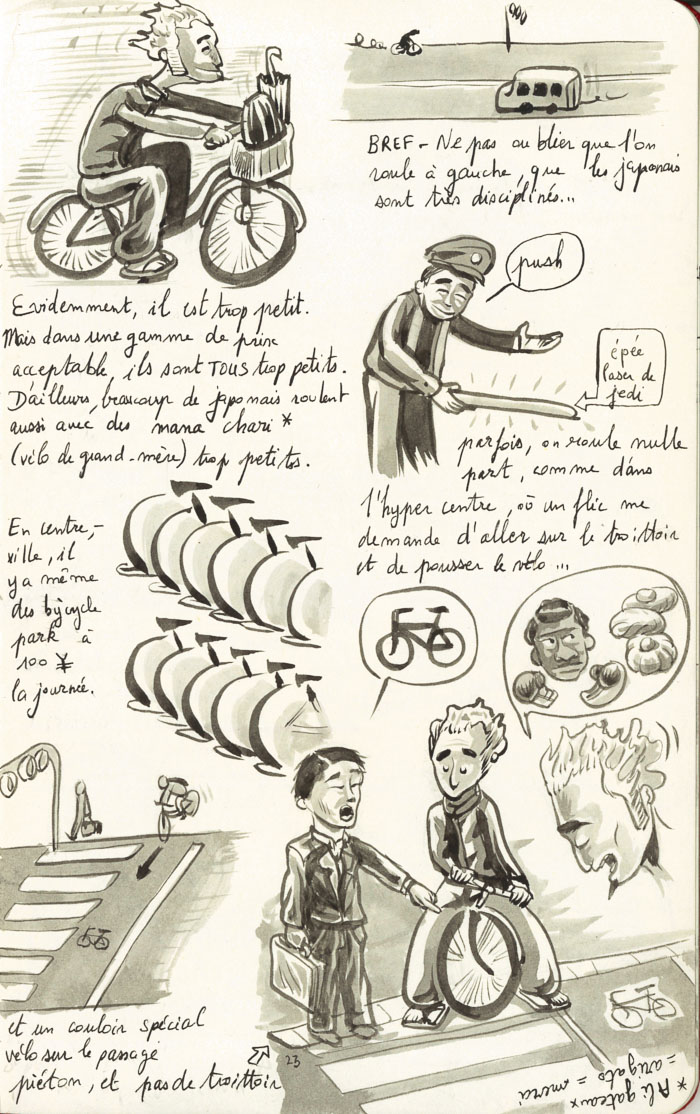 Evidemment, il est trop petit.
Mais dans une gamme de prix
acceptable, ils sont TOUS trop petits.
D'ailleurs, beaucoup de japonais roulent
aussi avec des mama chari *
(vélo de grand-mère) trop petits.
BREF - Ne pas oublier que l'on
roule à gauche, que les japonais
sont très disciplinés...
push
épée
laser de
jedi
parfois, on roule nulle
part, comme dans
l'hyper centre, où un flic me
demande d'aller sur le troittoir
et de pousser le vélo ...
En centre,-
ville, il
y a même
des bycycle
park à
100 ¥
la journée.
et un couloir spécial
vélo sur le passage
piéton, et pas de troittoir
23
* Ali gateau *
= arigato = merci